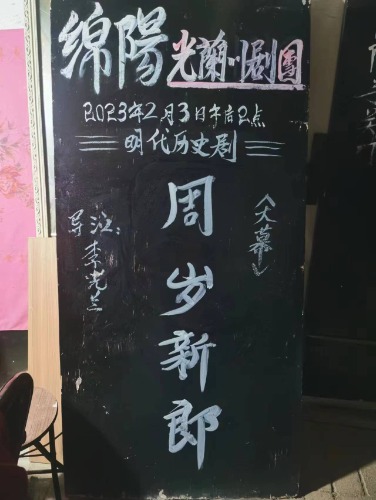 绵陽光蘭川剧團
2023年2月3日午后2点
明代历史剧
《大幕》
周岁新郎
导注:李光兰